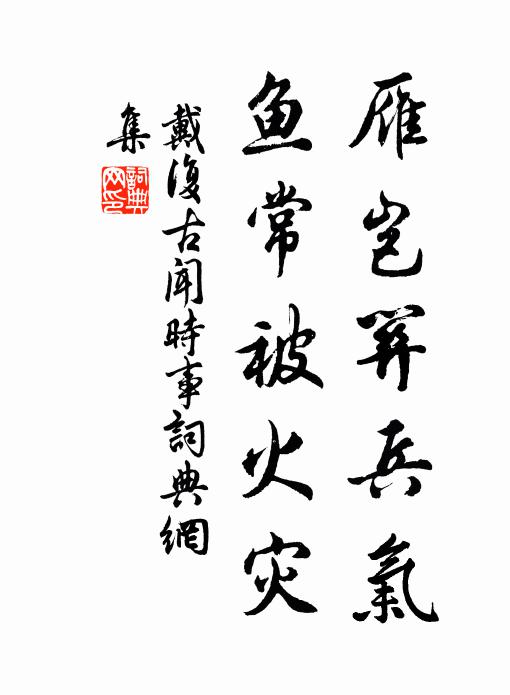 雁岂兵氣
鱼常被火灾
戴復古聞時事詞典網
集
詞典
网印